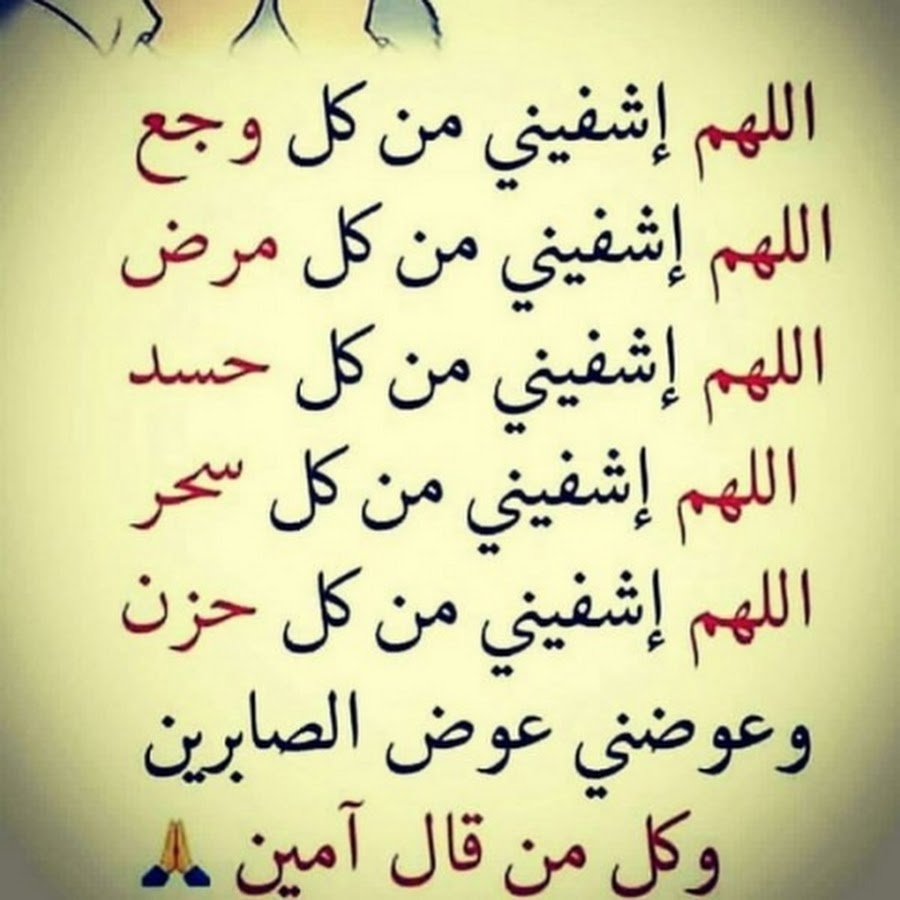 اللهم إشفيني من كل وجع
اللهم إشفيني من كل مرض
اللهم إشفيني من كل حسد
اللهم إشفيني من كل سحر
اللهم إشفيني من كل حزن
وعوضني عوض الصابرين
وكل من قال آمين 🙏